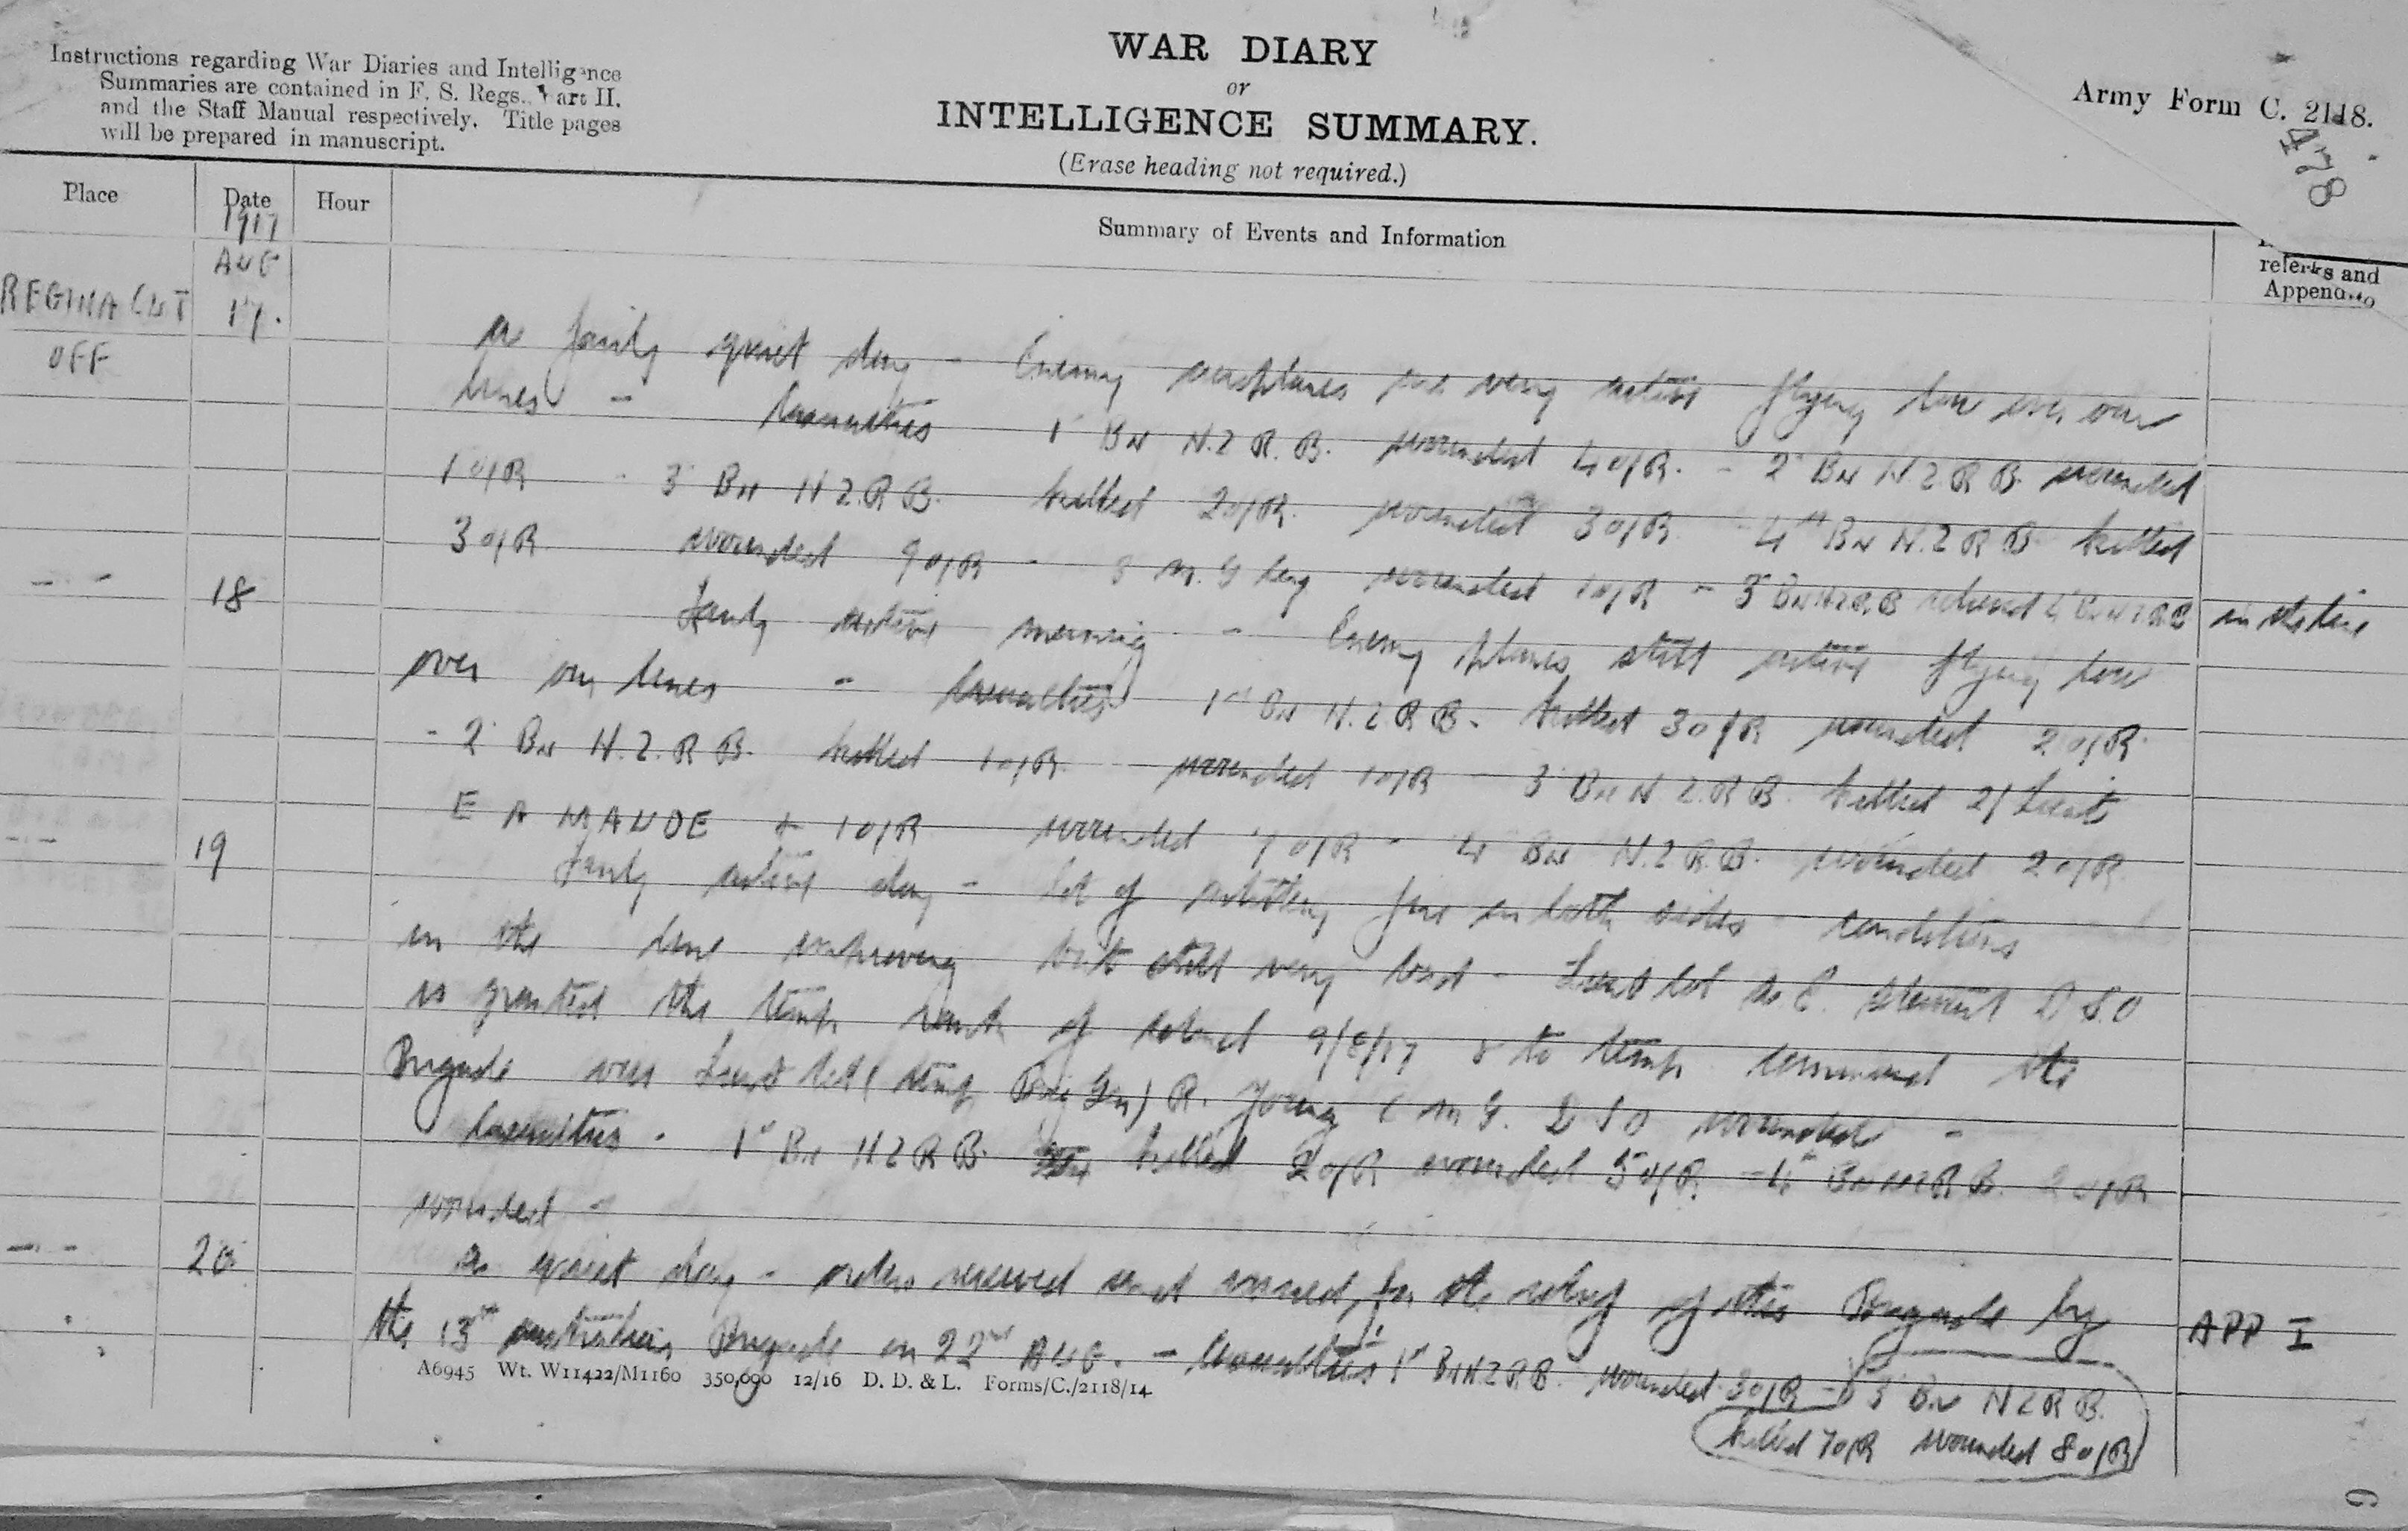 Instructions regarding War Diaries and Intelligence
Summaries are contained in F. S. Regs., Part II.
and the Staff Manual respectively. Title pages
will be prepared in manuscript.
WAR DIARY
or
INTELLIGENCE SUMMARY.
(Erase heading not required.)
Army Form C. 2118.
478
Place
Date
Hour
Summary of Events and Information
and
1917
AUG
REGINA CUT
OFF
17.
A fairly quiet day - Enemy aeroplanes very active flying low over our
lines - Casualties 1 Bn N.Z.R.B. wounded 4 O/R. - 2 Bn N.Z.R.B. wounded
1 O/R - 3 Bn N.Z.R.B. killed 2 O/R. wounded 3 O/R - 4th Bn N.Z.R.B. killed
3 O/R wounded 9 O/R - 3 M.G Coy wounded 1 O/R - 3 Bn NZRB relieved 4 Bn NZRB in the line
- " - 18
Fairly active morning - Enemy planes still active flying low
over our lines - Casualties 1st Bn N.Z.R.B. killed 3 O/R wounded 2 O/R
- 2 Bn N.Z.R.B. killed 1 O/R wounded 1 O/R - 3 Bn N.Z.R.B. killed 2/Lieut
E A MAUDE + 1 O/R wounded 7 O/R - 4 Bn N.Z.R.B. wounded 2 O/R
- " - 19
Fairly active day - lot of artillery fire on both sides - conditions
in the line improving but still very bad - Lieut Col A. E. Stewart D.S.O
is granted the temp rank of Colonel 9/8/17 & to temp command the
Brigade vice Lieut Col (temp Brig Gen) R. Young C M G. D S O wounded -
Casualties - 1st Bn NZRB killed 2 O/R wounded 5 O/R - 4 Bn NZRB. 2 O/R
wounded -
- " - 20
A quiet day - orders received and issued for the relief of this Brigade by
the 13th Australian Brigade on 22nd AUG. - Casualties 1st Bn NZRB. wounded 3 O/R - 3 Bn NZRB.
killed 7 O/R wounded 8 O/R
APP I
A6945 Wt. W11422/M1160 350,000 12/16 D. D. & L. Forms/C./2118/14